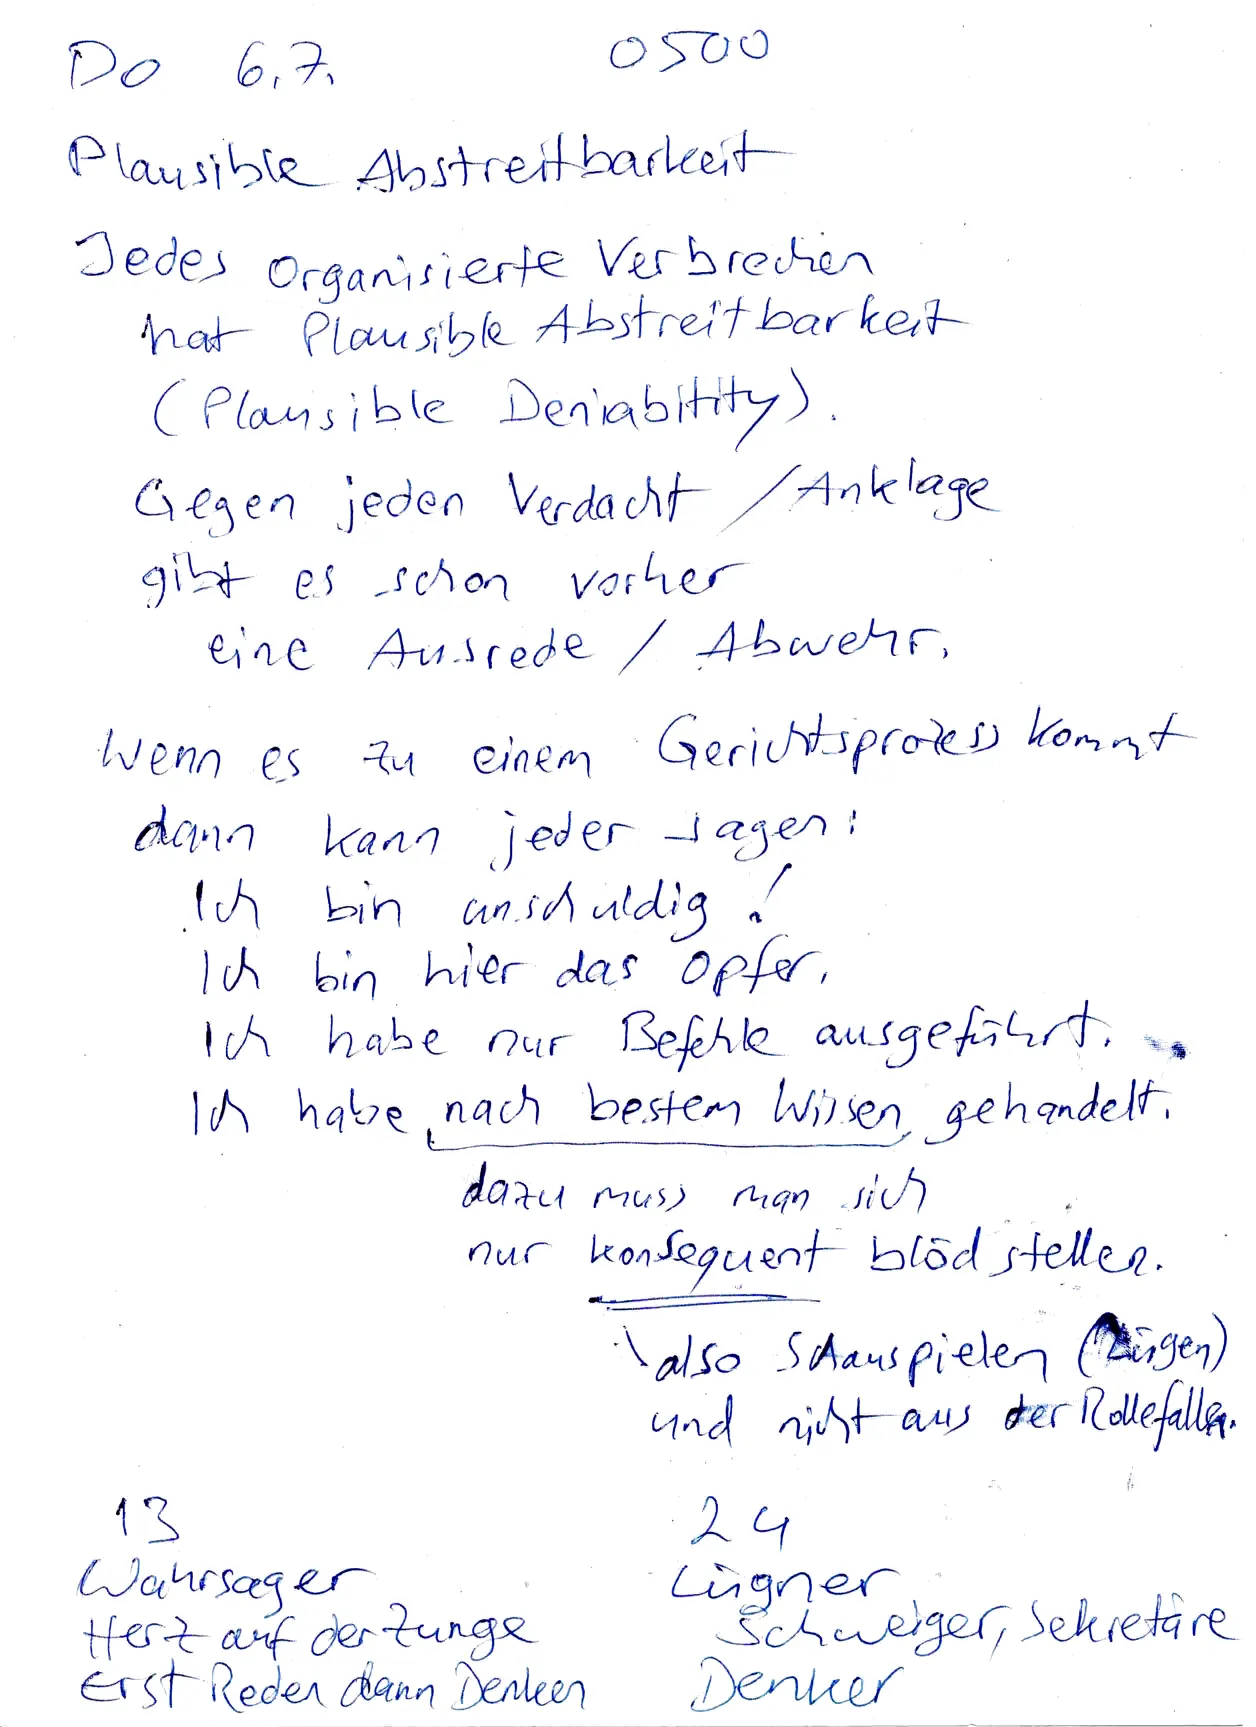 Do 6.7. 0500
Plausible Abstreitbarkeit
Jedes organisierte Verbrechen
hat Plausible Abstreitbarkeit
(Plausible Deniabitity).
Gegen jeden Verdacht / Anklage
gibt es schon vorher
eine Ausrede / Abwehr.
Wenn es zu einem Gerichtsprozess kommt
dann kann jeder sagen:
Ich bin unschuldig!
Ich bin hier das Opfer.
Ich habe nur Befehle ausgeführt.
Ich habe nach bestem Wissen gehandelt.
dazu muss man sich
nur konsequent blöd stellen.
also Schauspielen (Lügen)
und nicht aus der Rolle fallen.
13 24
Wahrsager Lügner
Herz auf der Zunge Schweiger, Sekretäre
Erst Reden dann Denken Denker